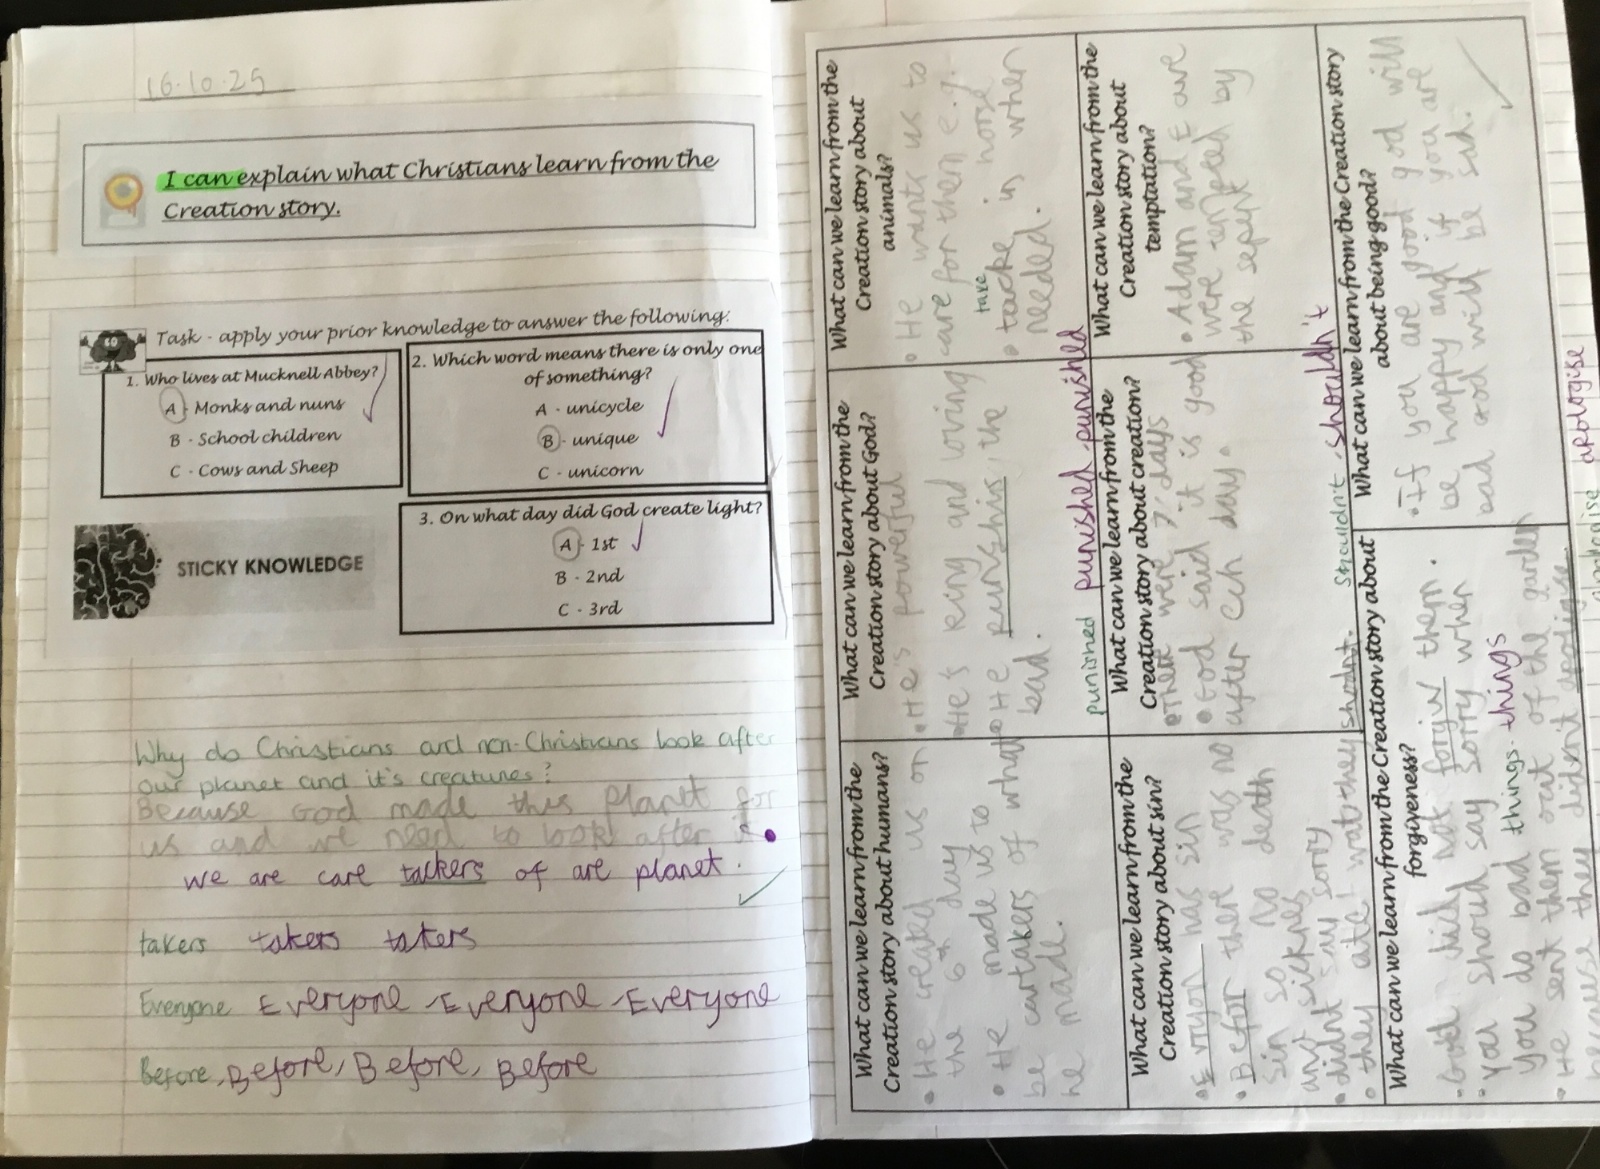 16.10.25
I can explain what Christians learn from the
Creation story.
Task - apply your prior knowledge to answer the following:
1. Who lives at Mucknell Abbey?
A - Monks and nuns
B - School children
C - Cows and Sheep
2. Which word means there is only one
of something?
A - unicycle
B - unique
C - unicorn
3. On what day did God create light?
A - 1st
B - 2nd
C - 3rd
STICKY KNOWLEDGE
Why do Christians and non-Christians look after
our planet and it's creatures?
Because God made this planet for
us and we need to look after it.
we are care tackers of are planet.
takers takers takers
Everyone Everyone - Everyone - Everyone
Before, Before, Before, Before
What can we learn from the
Creation story about humans?
• He created us on
the 6th day
• He made us to
be cartakers of what
he made.
What can we learn from the
Creation story about God?
• He's powerful
• He's king and loving
• He punshis, the
bad.
punished punished punished
What can we learn from the
Creation story about
animals?
• He wants us to
care for them e.g.
take
• tacke in horse
needed. when
What can we learn from the
Creation story about sin?
• Evryon has sin
• Befor there was no
sin so no death
and sicknes
• didnt say sorry
• they ate wat they shodnt.
shouldn't - shouldn't
What can we learn from the
Creation story about creation?
• There were 7 days
• God said it is good
after ech day.
What can we learn from the
Creation story about
temptation?
• Adam and
were tempted by
the
What can we learn from the Creation story about
forgiveness?
• God did not forgiv them.
• you should say sorry when
you do bad things - things
• He sent them out of the garden
because they didn't
apologise
What can we learn from the Creation story
about being good?
• If you are good god will
be happy and if you are
bad God will be sad.